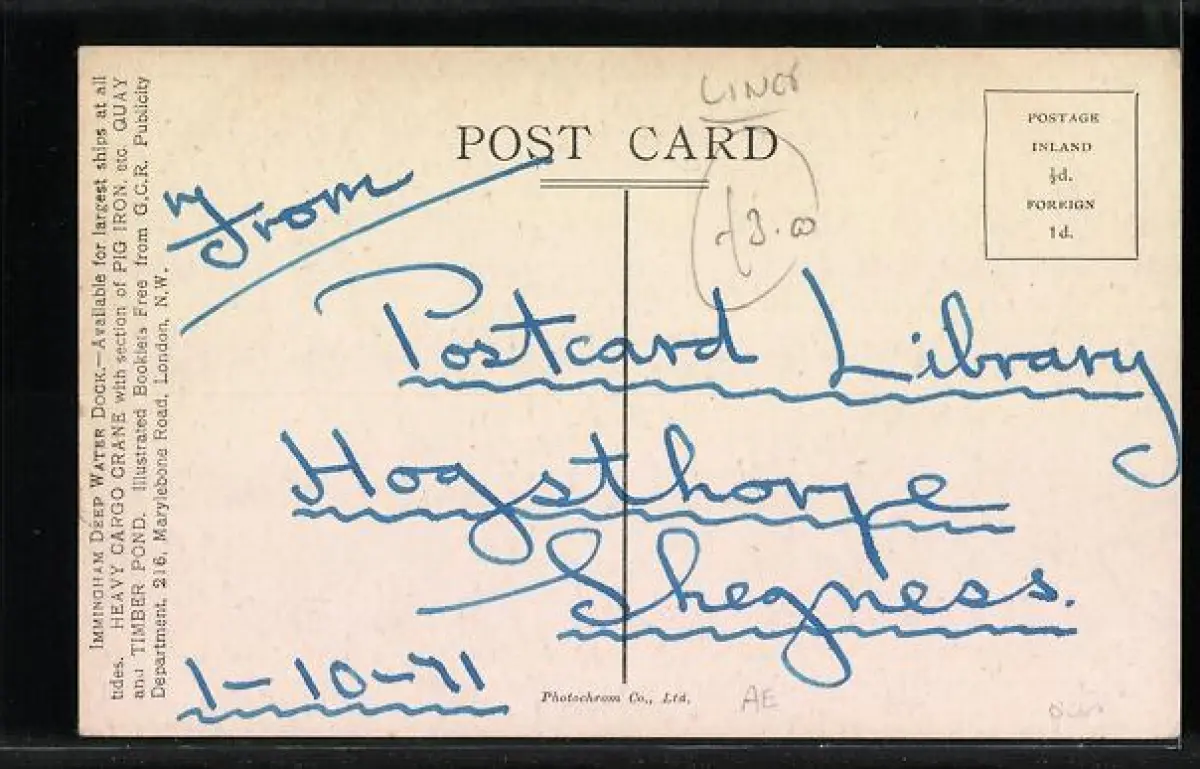 IMMINGHAM DEEP WATER DOCK.—Available for largest ships at all
tides. HEAVY CARGO CRANE with section of PIG IRON, etc. QUAY
and TIMBER POND. Illustrated Booklets Free from G.C.R. Publicity
Department, 216, Marylebone Road, London, N.W.
LINCS
POST CARD
POSTAGE
INLAND
½d.
FOREIGN
1d.
£3.00
From
Postcard Library
Hogsthorpe
Skegness.
1-10-71
Photochrom Co., Ltd.
AE